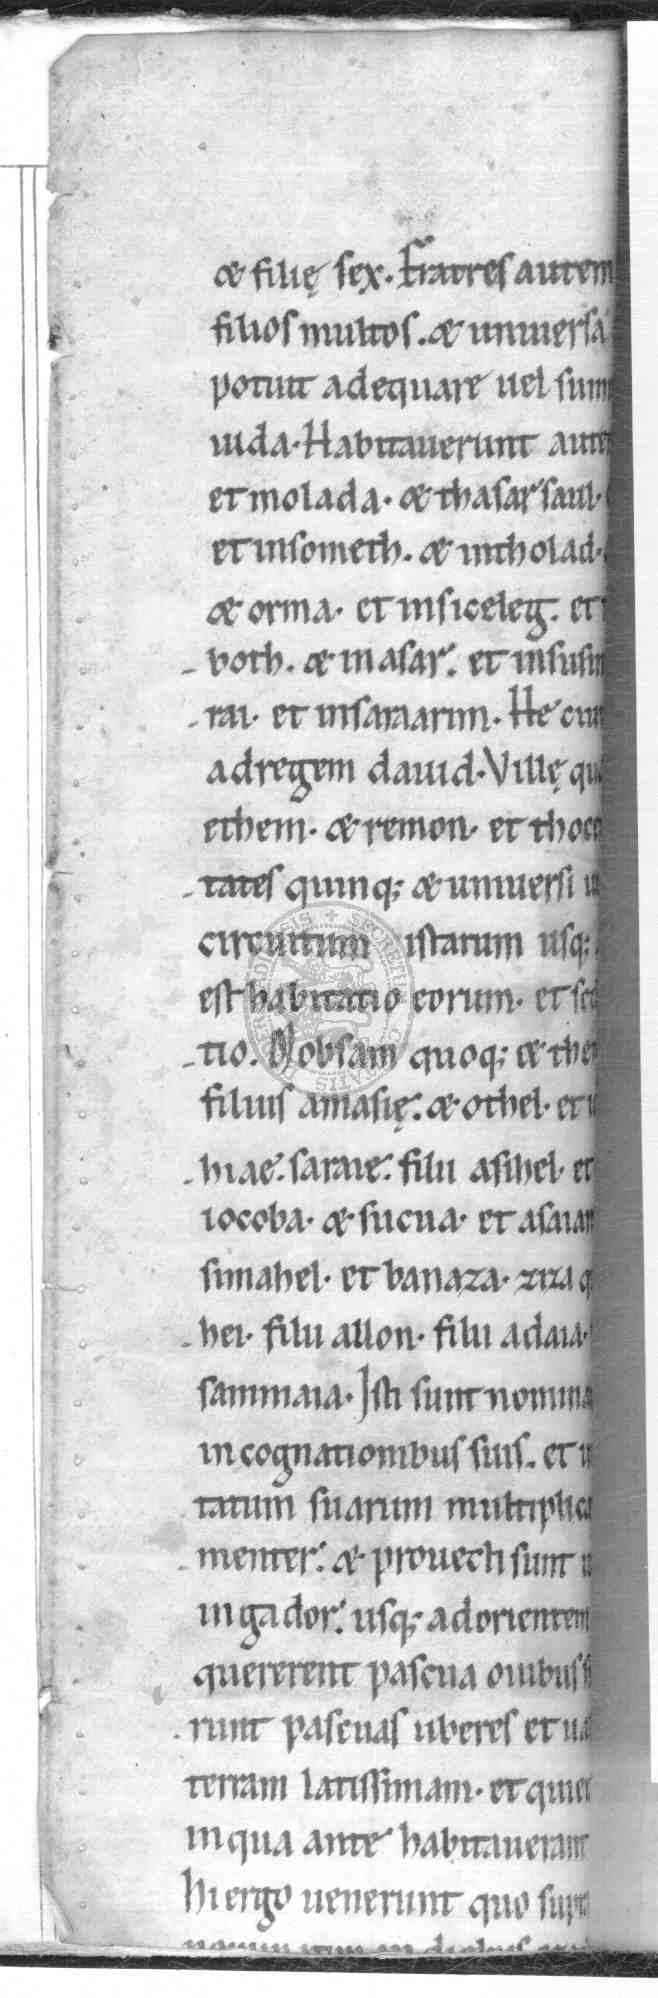 & filię sex. Fratres autem
filios multos. & uniuersa
potuit adequare uel sum
iuda. Habitauerunt aute
et molada. & thasar saul.
et insometh. & intholad.
& orma. et insiceleg. et
both. & inasar. et insusim
rai. et insaraarim. He ciui
ad regem dauid. Villę qu
ethem. & remon. et thoce
tates quinq; & uniuersi ui
circuitum istarum usq;
est habitatio eorum. et sed
tio. Mobsam quoq; & the
filius amasię. & othel. et
hiae. saraie. filii asihel. et
iocoba. & sucua. et asaian
simahel. et banaza. ziza q
hei. filii allon. filii adaia.
sammaia. Isti sunt nomina
in cognationibus suis. et in
tatum suarum multiplica
menter. & prouecti sunt u
in gador. usq; ad orientem
quererent pascua ouibus s
runt pascuas uberes et ual
terram latissimam. et quiet
in qua ante habitauerant
hi ergo uenerunt quo supra